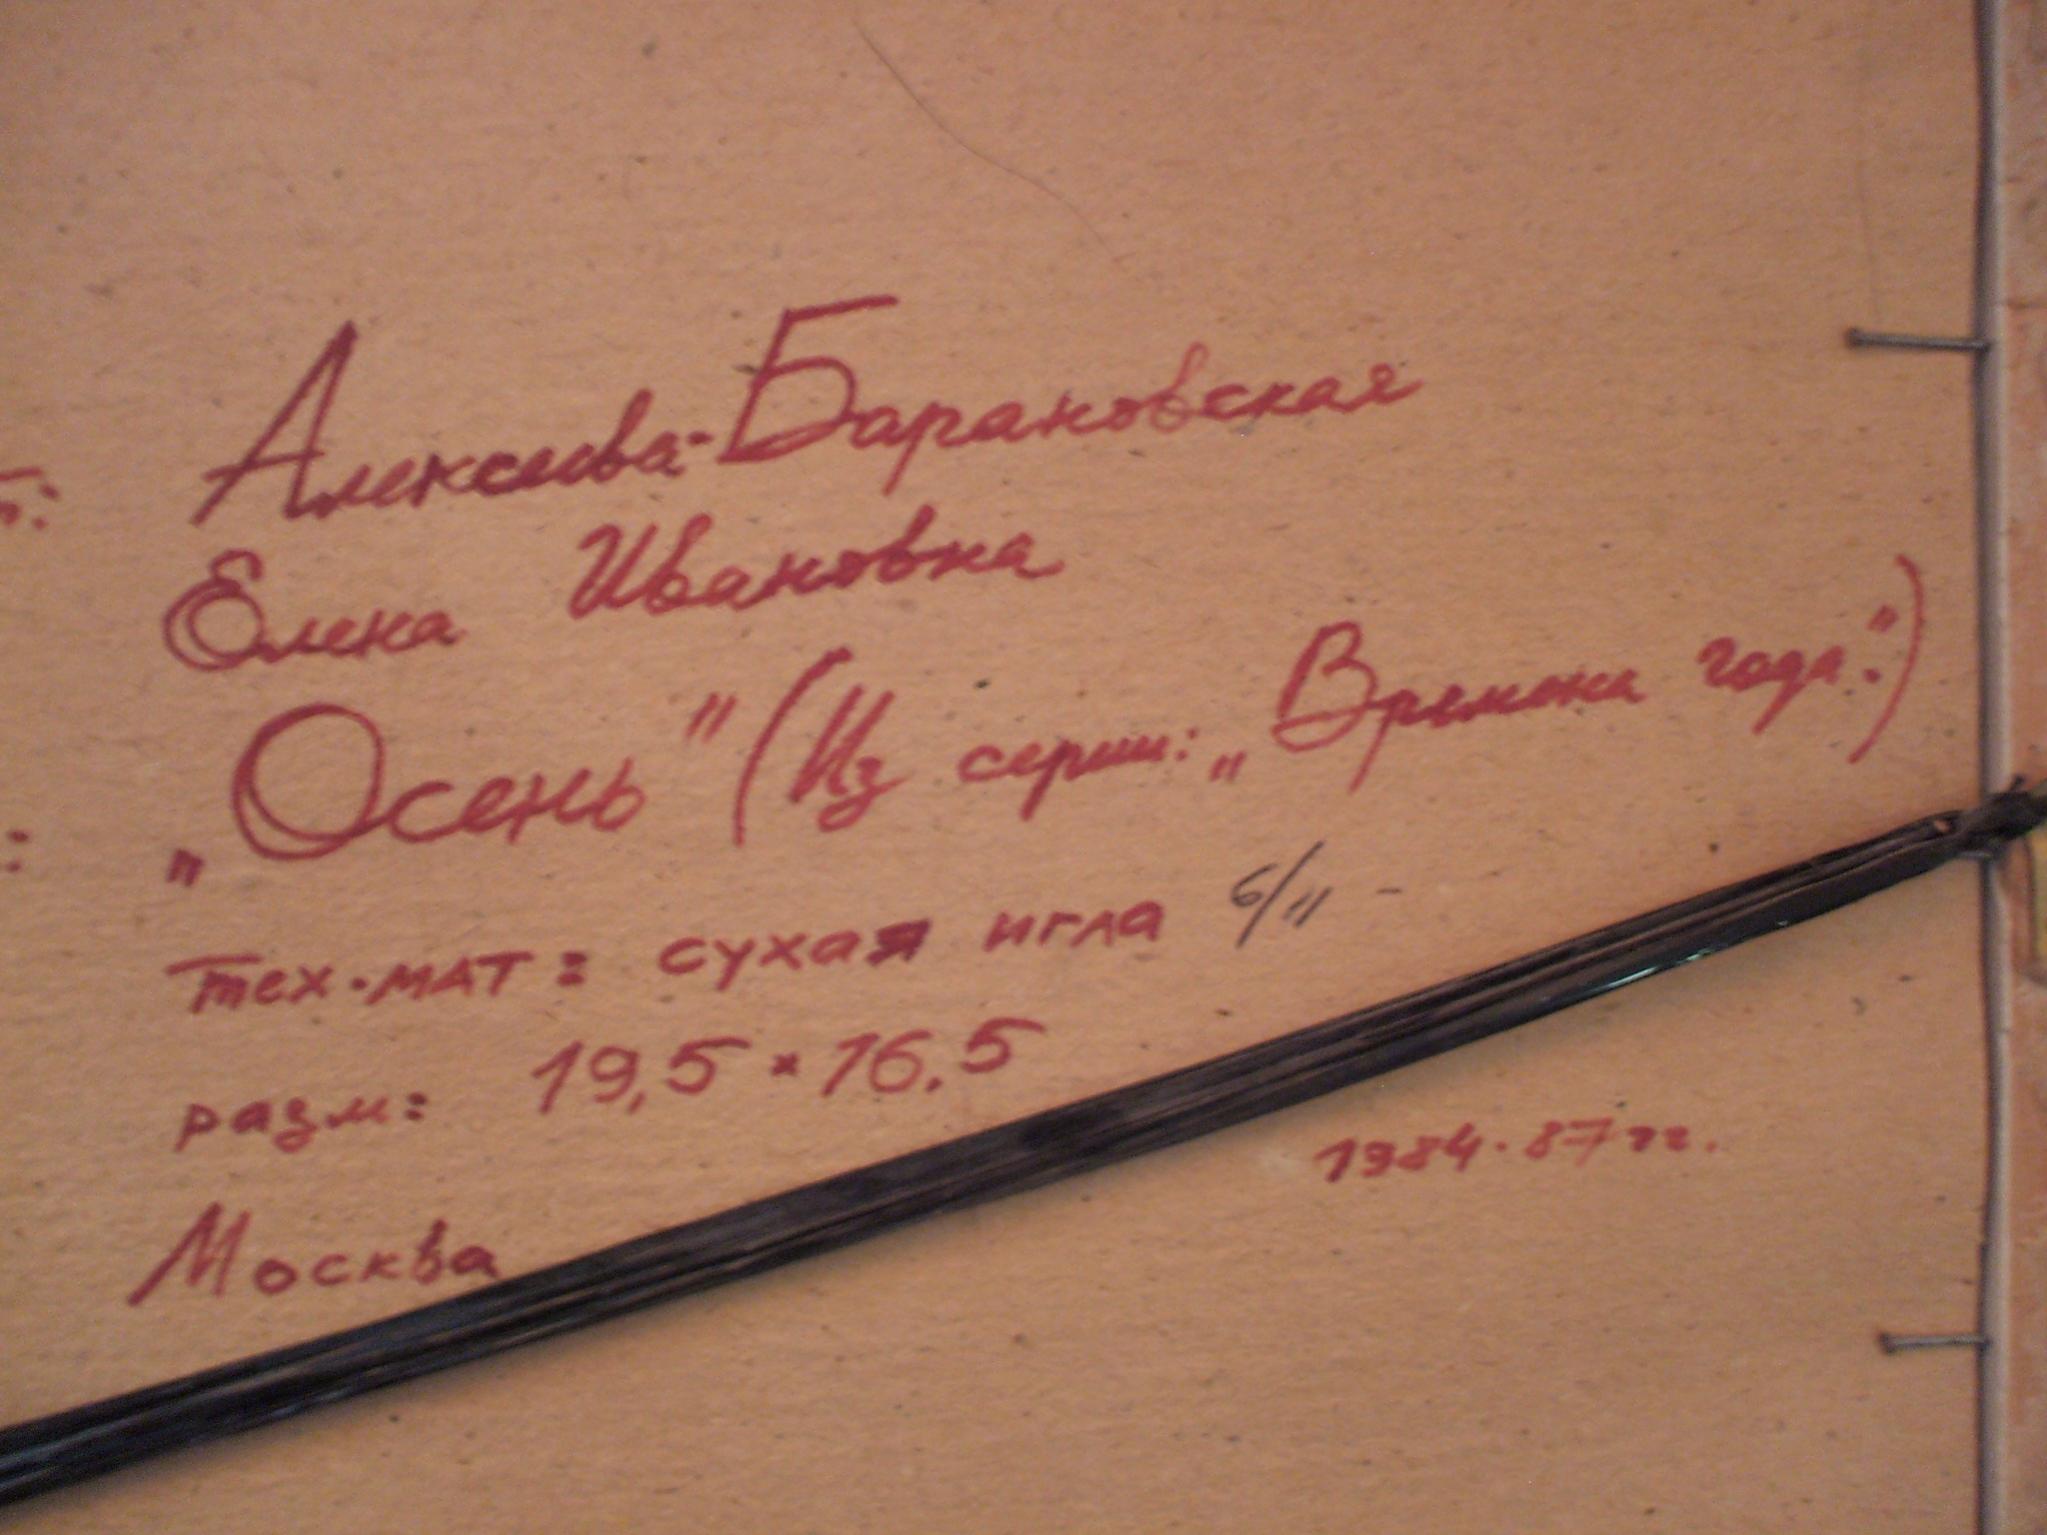 т: Алексеева-Барановская
Елена Ивановна
: „Осень" (Из серии: „Времена года.")
тех.мат: сухая игла б/н -
разм: 19,5 × 16,5
1984-87 гг.
Москва